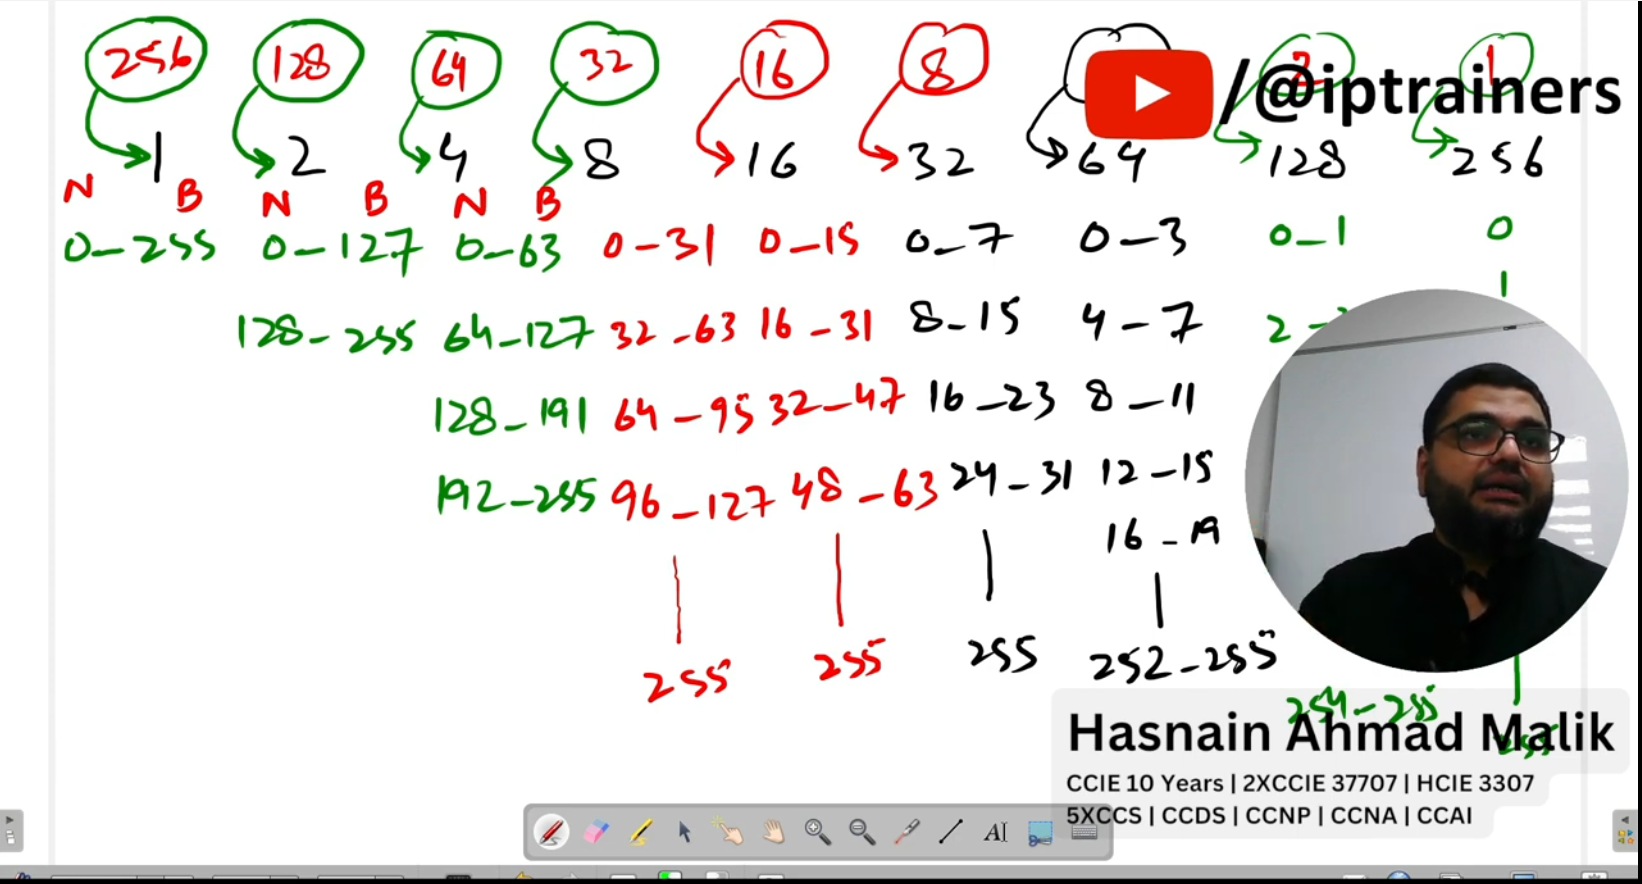 256 128 64 32 16 8 2 1
/@iptrainers
1 2 4 8 16 32 64 128 256
N B N B N B
0-255 0-127 0-63 0-31 0-15 0-7 0-3 0-1 0
1
128-255 64-127 32-63 16-31 8-15 4-7 2-
128-191 64-95 32-47 16-23 8-11
192-255 96-127 48-63 24-31 12-15
16-19
255 255 255 252-255
254-255
255
Hasnain Ahmad Malik
CCIE 10 Years | 2XCCIE 37707 | HCIE 3307
5XCCS | CCDS | CCNP | CCNA | CCAI
AI